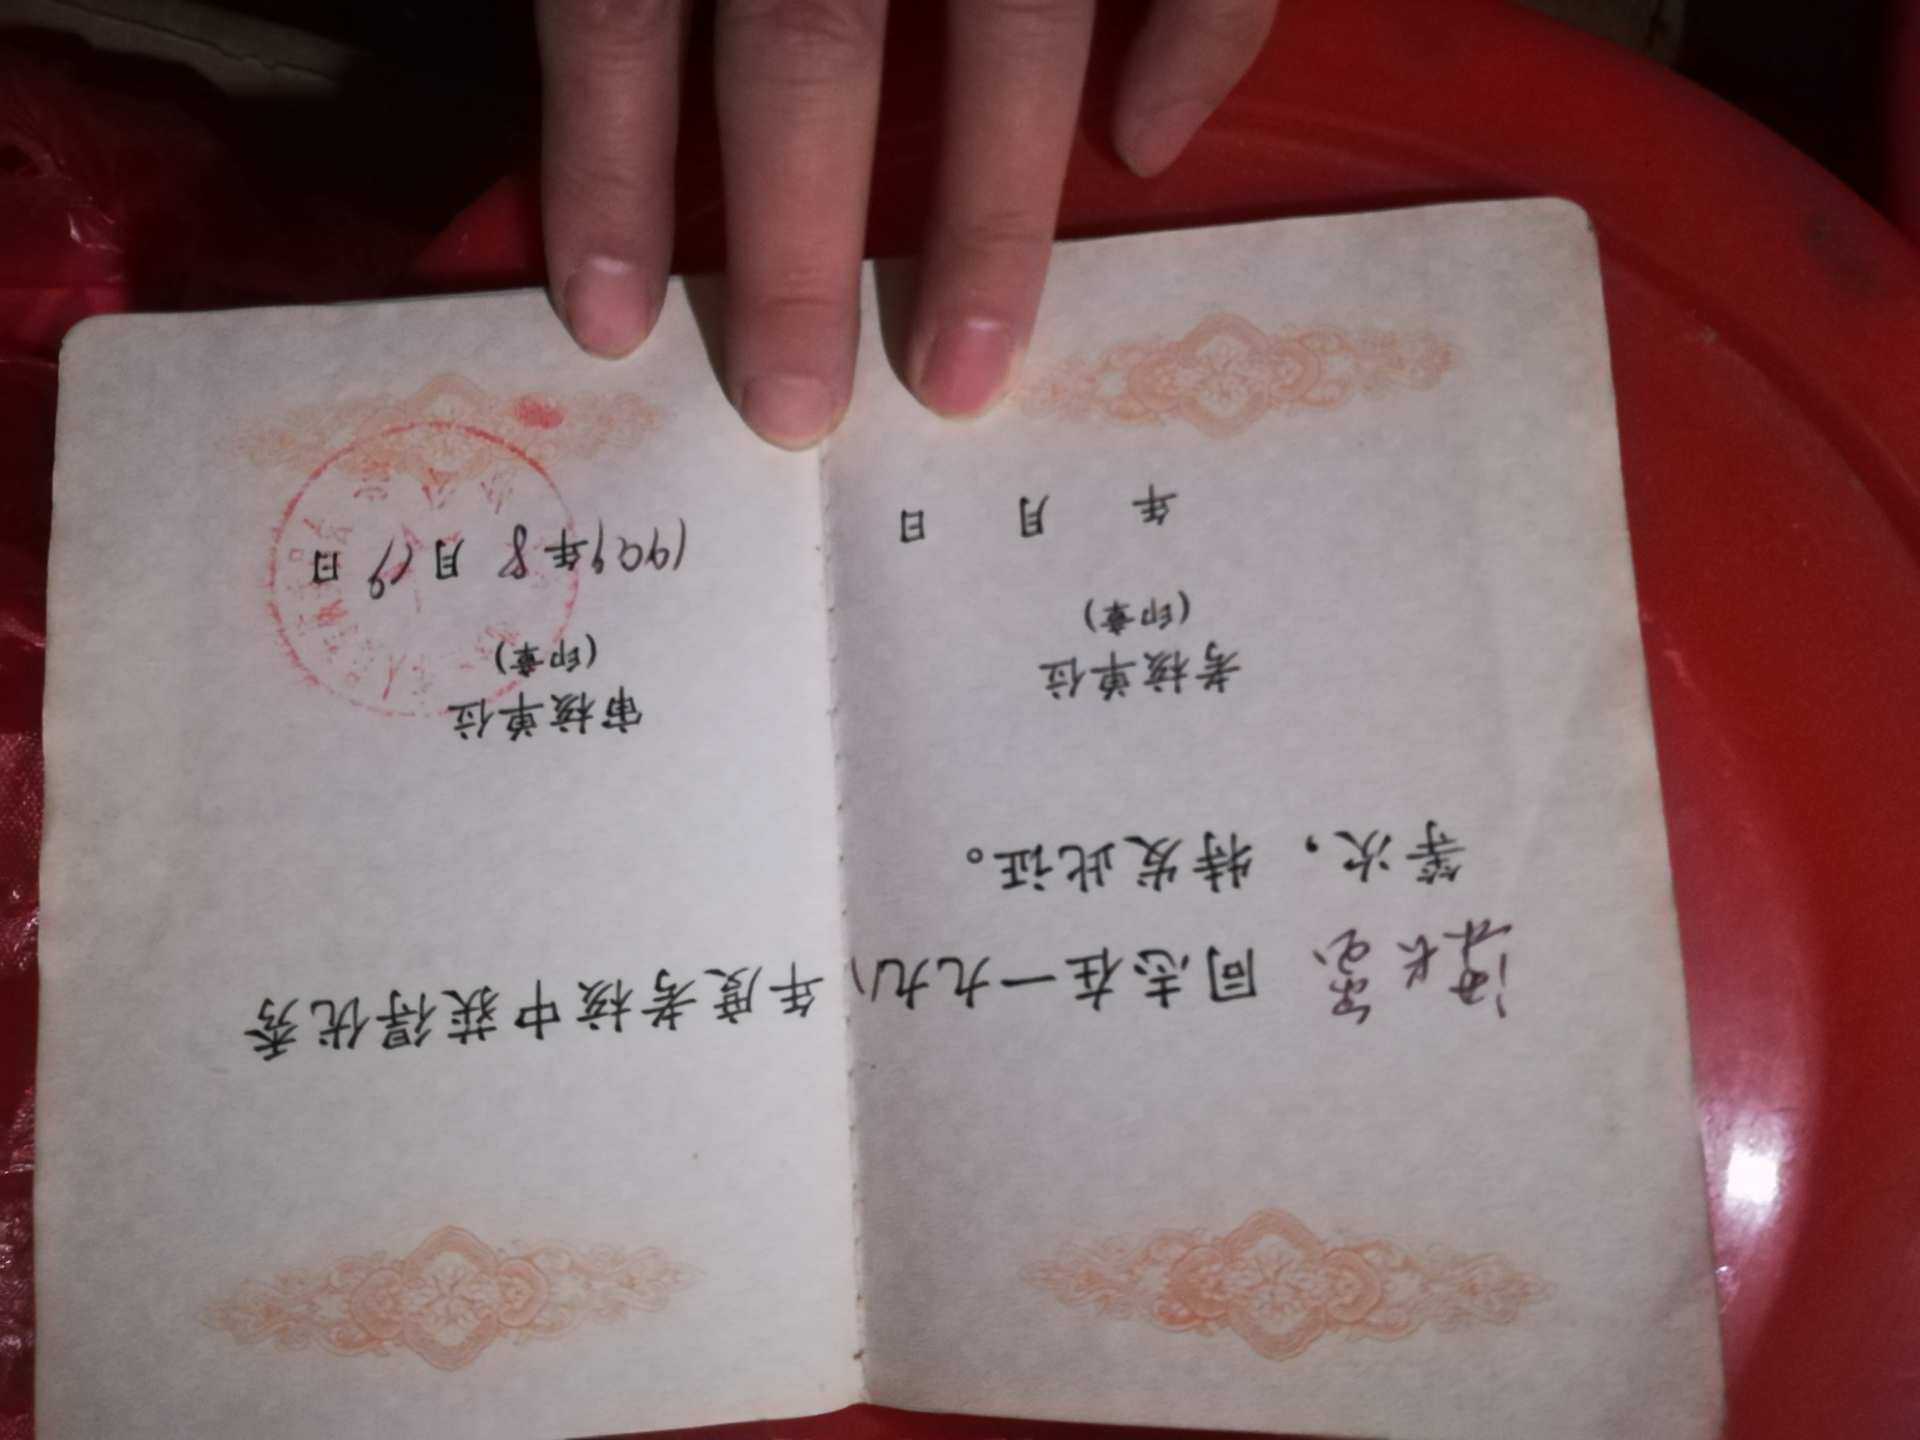 同志在一九九八年度考核中获得优秀
等次，特发此证。
考核单位
(印章)
年 月 日
审核单位
(印章)
1999年8月19日